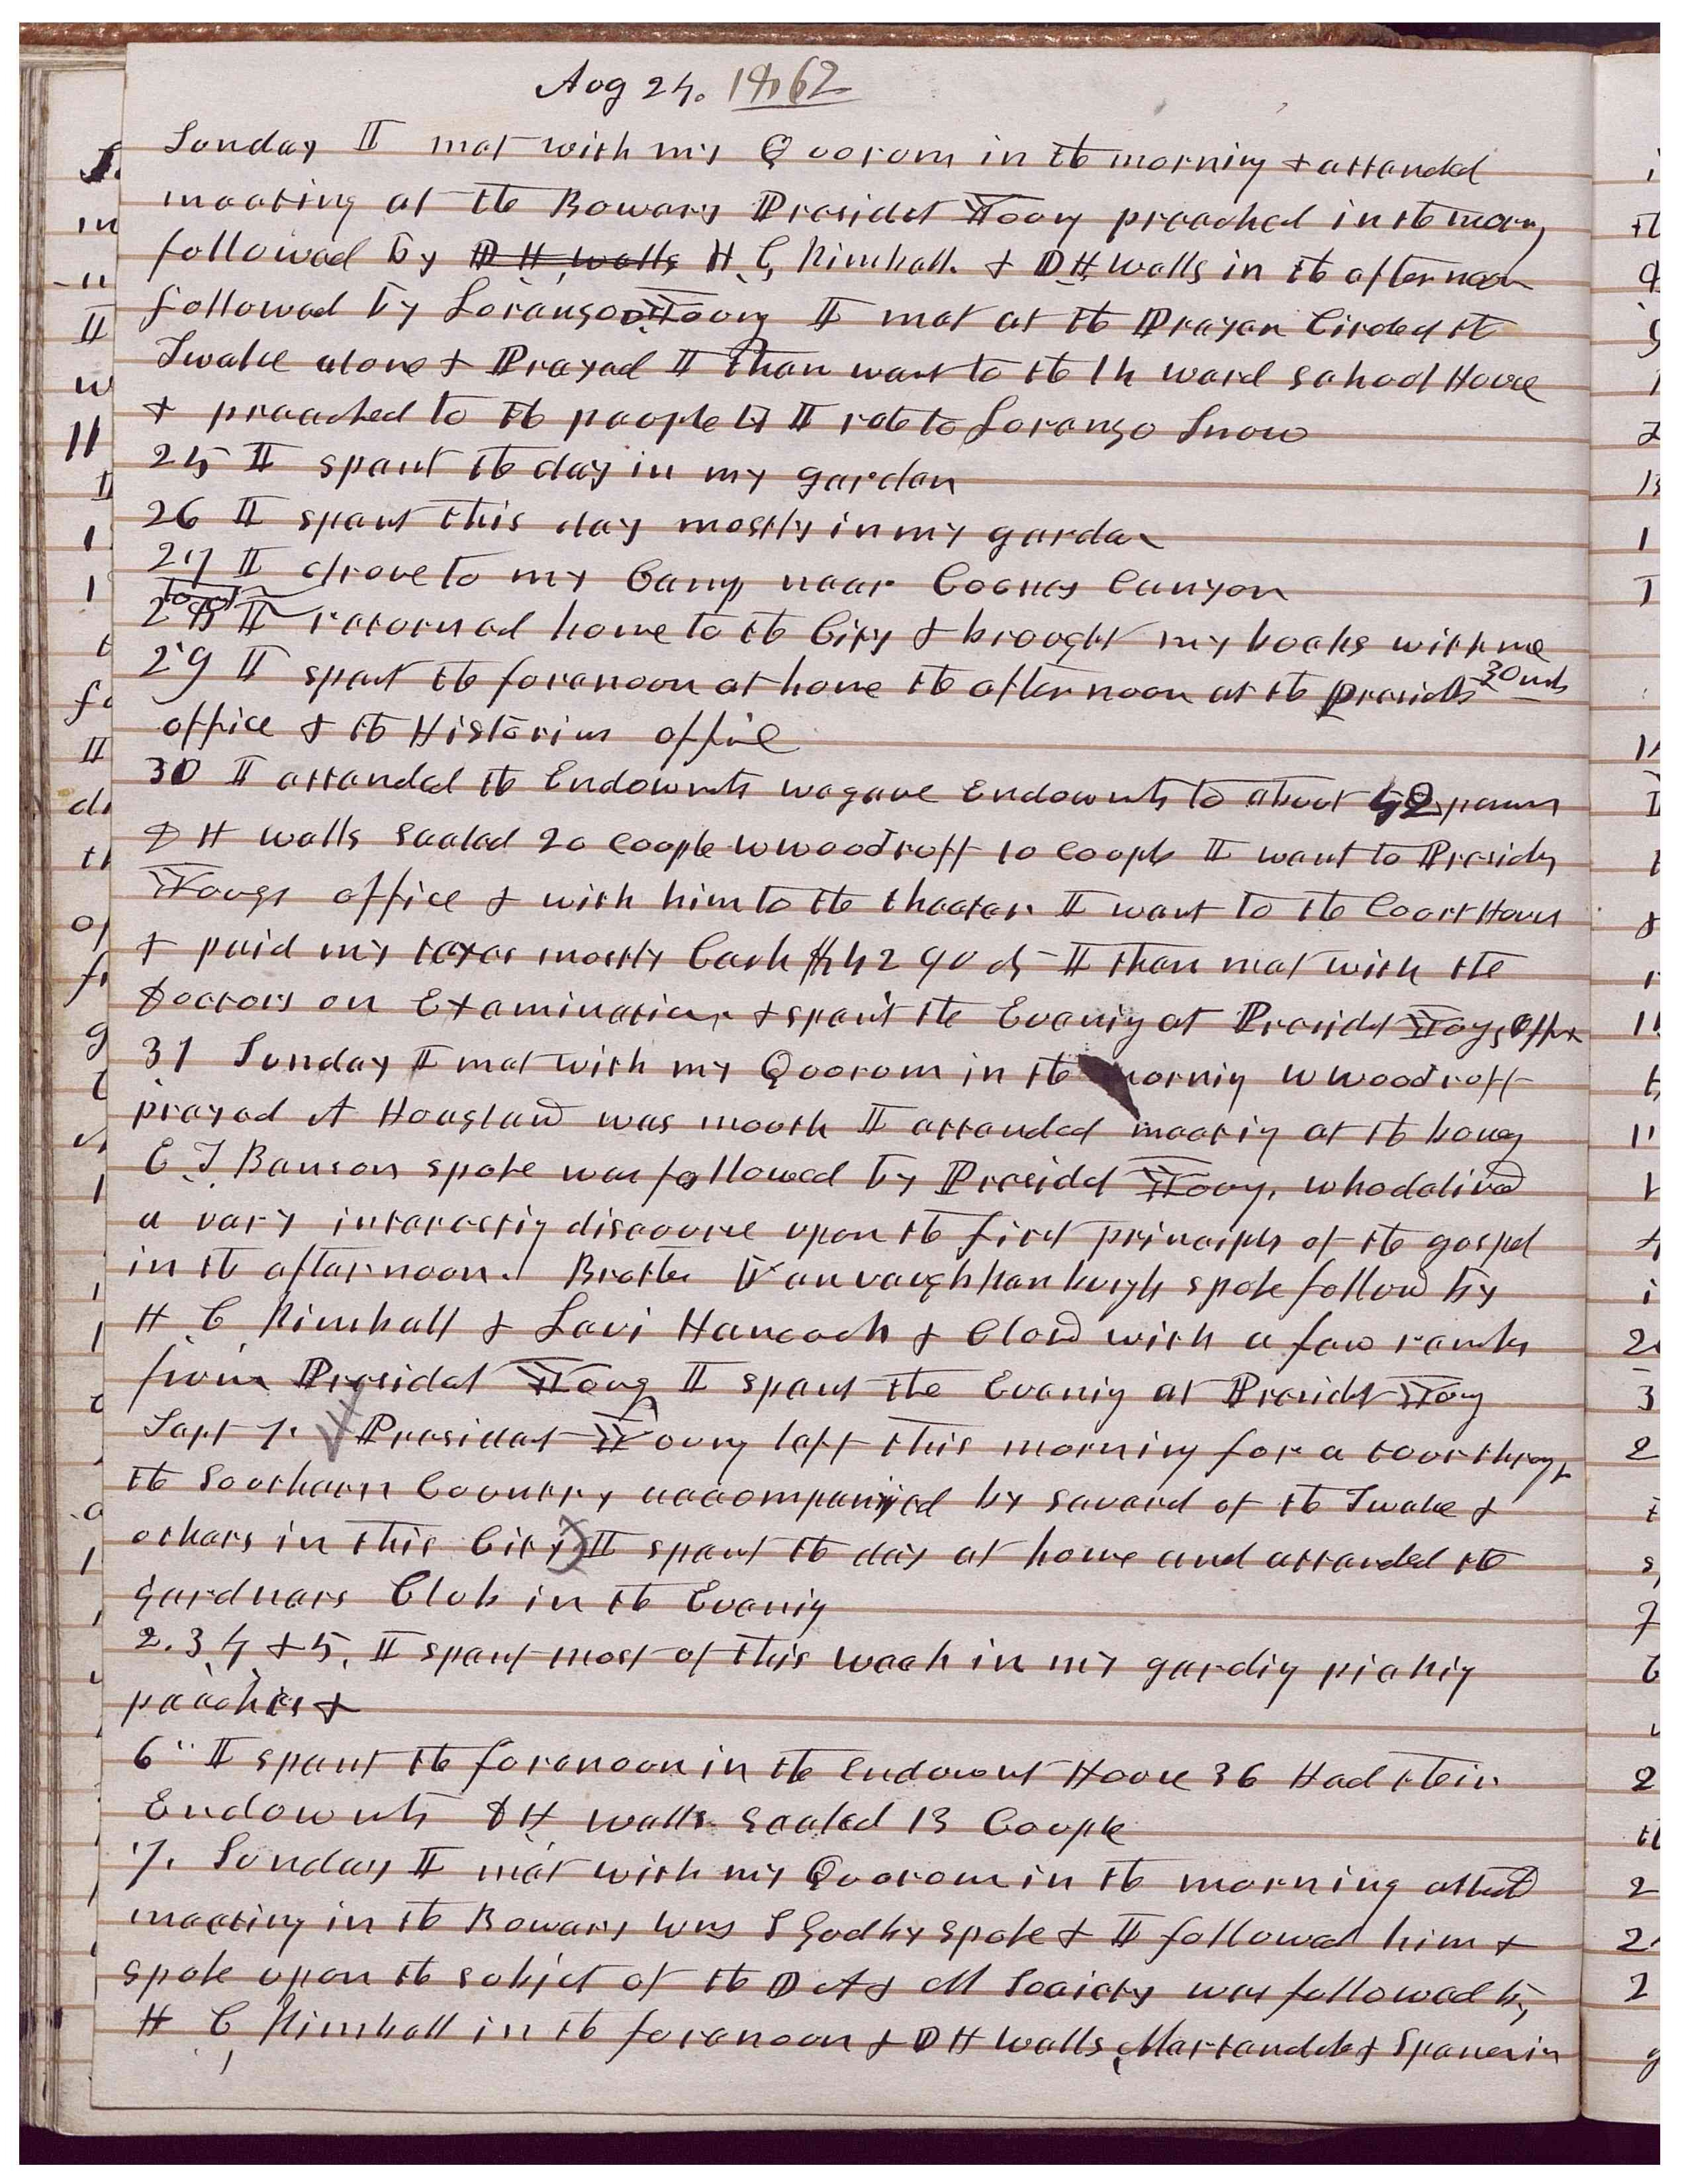 Aug 24. 1862
Sunday I met with my Quorum in the morning & attended
meeting at the Bowery Presidet Young preached in the morng
followed by D H wells H C, Kimball. & D H Wells in the afternoon
followed by Lorenzo D Young I met at the Prayer Circle of the
Twelve alone & Prayed I then went to the 14 ward school House
& preached to the people I rote to Lorenzo Snow
25 I spent the day in my garden
26 I spent this day mostly in my garden
27 I drove to my Camp near Coones Canyon
28 I returned home to the City & brought my books with me
30 mls
29 I spent the forenoon at home the afternoon at the Presidts
office & the Historian office
30 I attended the Endowmts we gave Endowmts to about 42 persons
D H Wells Sealed 20 Couple W Woodruff 10 Coupl I went to Presidt
Youngs office & with him to the theater I went to the Court House
& paid my taxes mostly Cash I then met with the
Doctors on Examination & spent the Evening at Presidet Youngs Office
31 Sunday I met with my Quorum in the morning W Woodruff
prayed A Hoagland was mouth I attended meeting at the bowery
E. T. Benson spoke was followed by Presidet Young, who delived
a very interesting discourse upon the first principls of the gospel
in the afternoon. Brother spoke follow by
H C Kimball & Levi Hancock & Closed with a few remks
from Presidet Young I spent the Evening at Presidet Young
Sept 1. President Young left this morning for a tour through
the Southern Country accompanied by several of the Twelve &
others in this City I spent the day at home and attended the
Gardners Club in the Evening
2. 3, 4 & 5, I spent most of this week in my gardig picking
peaches &
6" I spent the forenoon in the Endowmt House 36 Had their
Endowmts D H Wells Sealed 13 Couple
7. Sunday I met with my Quorum in the morning attend
meeting in the Bowery Wm S Godby spoke & I followed him &
spoke upon the subjct of the D A & M Society was followed by
H C Kimball in the forenoon & D H Wells, & Spencer in